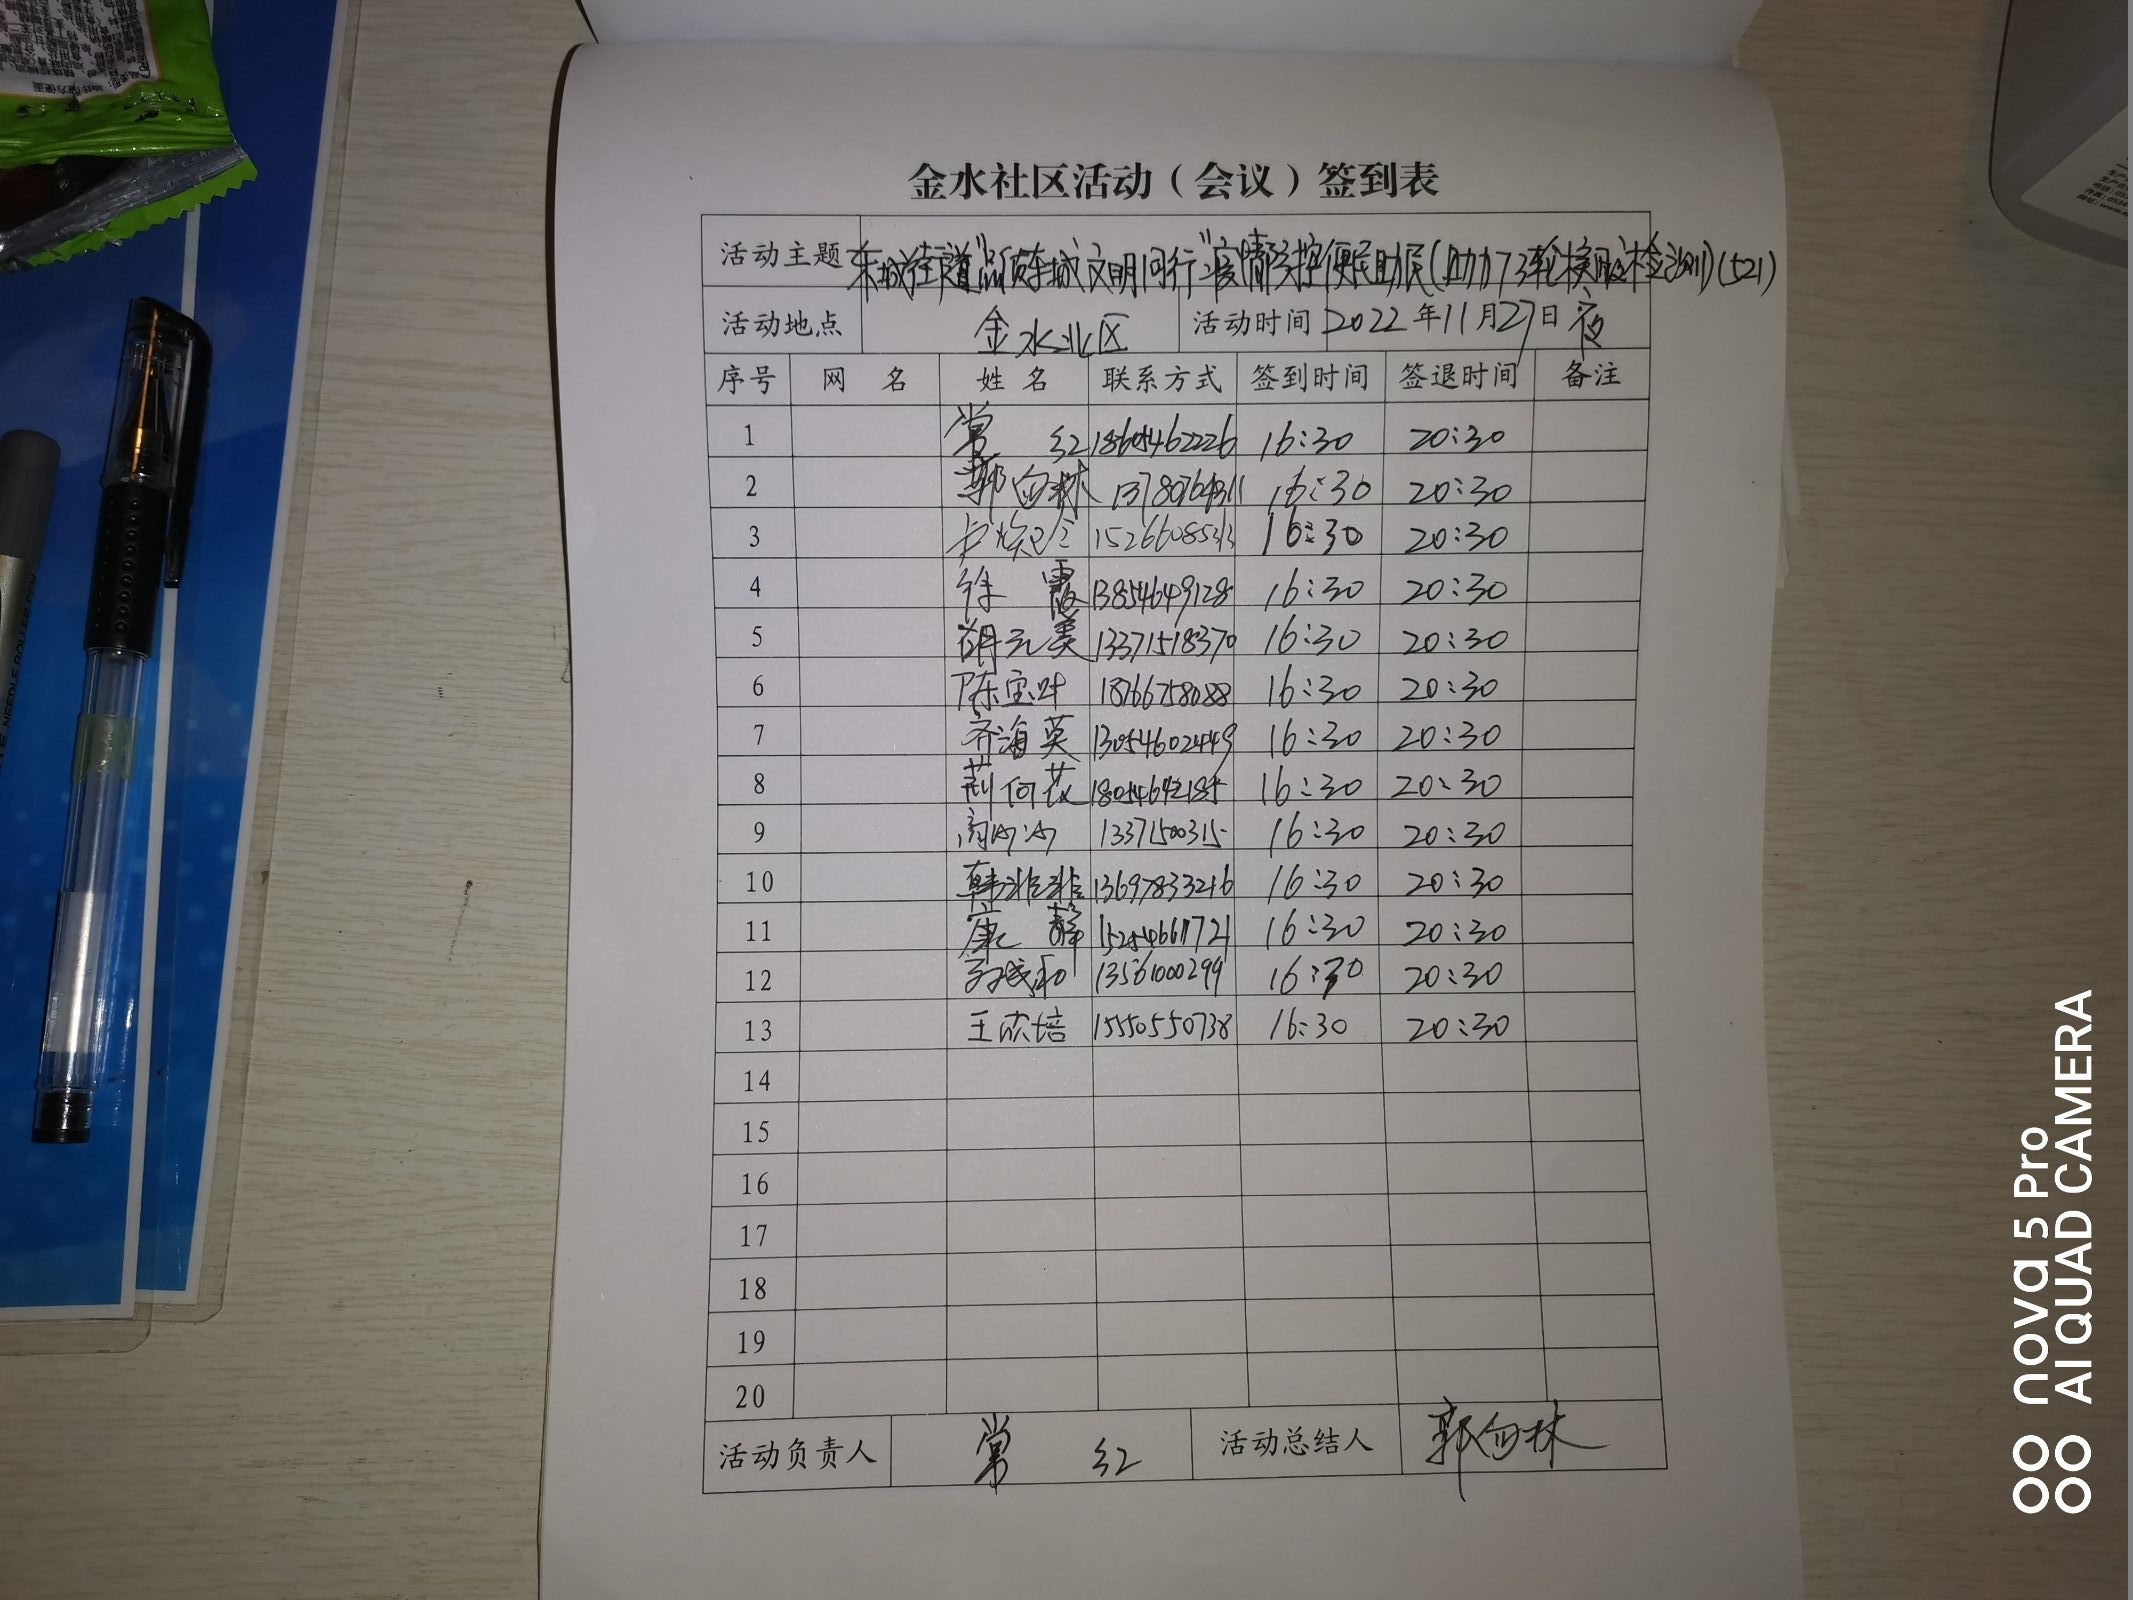 金水社区活动（会议）签到表
活动主题 东城街道"品质东城 文明同行"疫情防控便民助民(助力73轮核酸检测)(521)
活动地点 金水北区 活动时间 2022年11月27日夜
序号 网 名 姓 名 联系方式 签到时间 签退时间 备注
1 常 红 18605462226 16:30 20:30
2 郭向林 13780764311 16:30 20:30
3 15266085313 16:30 20:30
4 徐 霞 13854649128 16:30 20:30
5 胡元美 13371518370 16:30 20:30
6 陈宝叶 18766758088 16:30 20:30
7 齐海英 13054602449 16:30 20:30
8 荆何茂 18054642185 16:30 20:30
9 13371500315 16:30 20:30
10 韩非非 13697833216 16:30 20:30
11 康 静 15254661721 16:30 20:30
12 孙成和 13561000299 16:30 20:30
13 王欣培 15550550738 16:30 20:30
14
15
16
17
18
19
20
活动负责人 常 红 活动总结人 郭向林
NEEDLE ROLLER PEN
nova 5 Pro
AI QUAD CAMERA